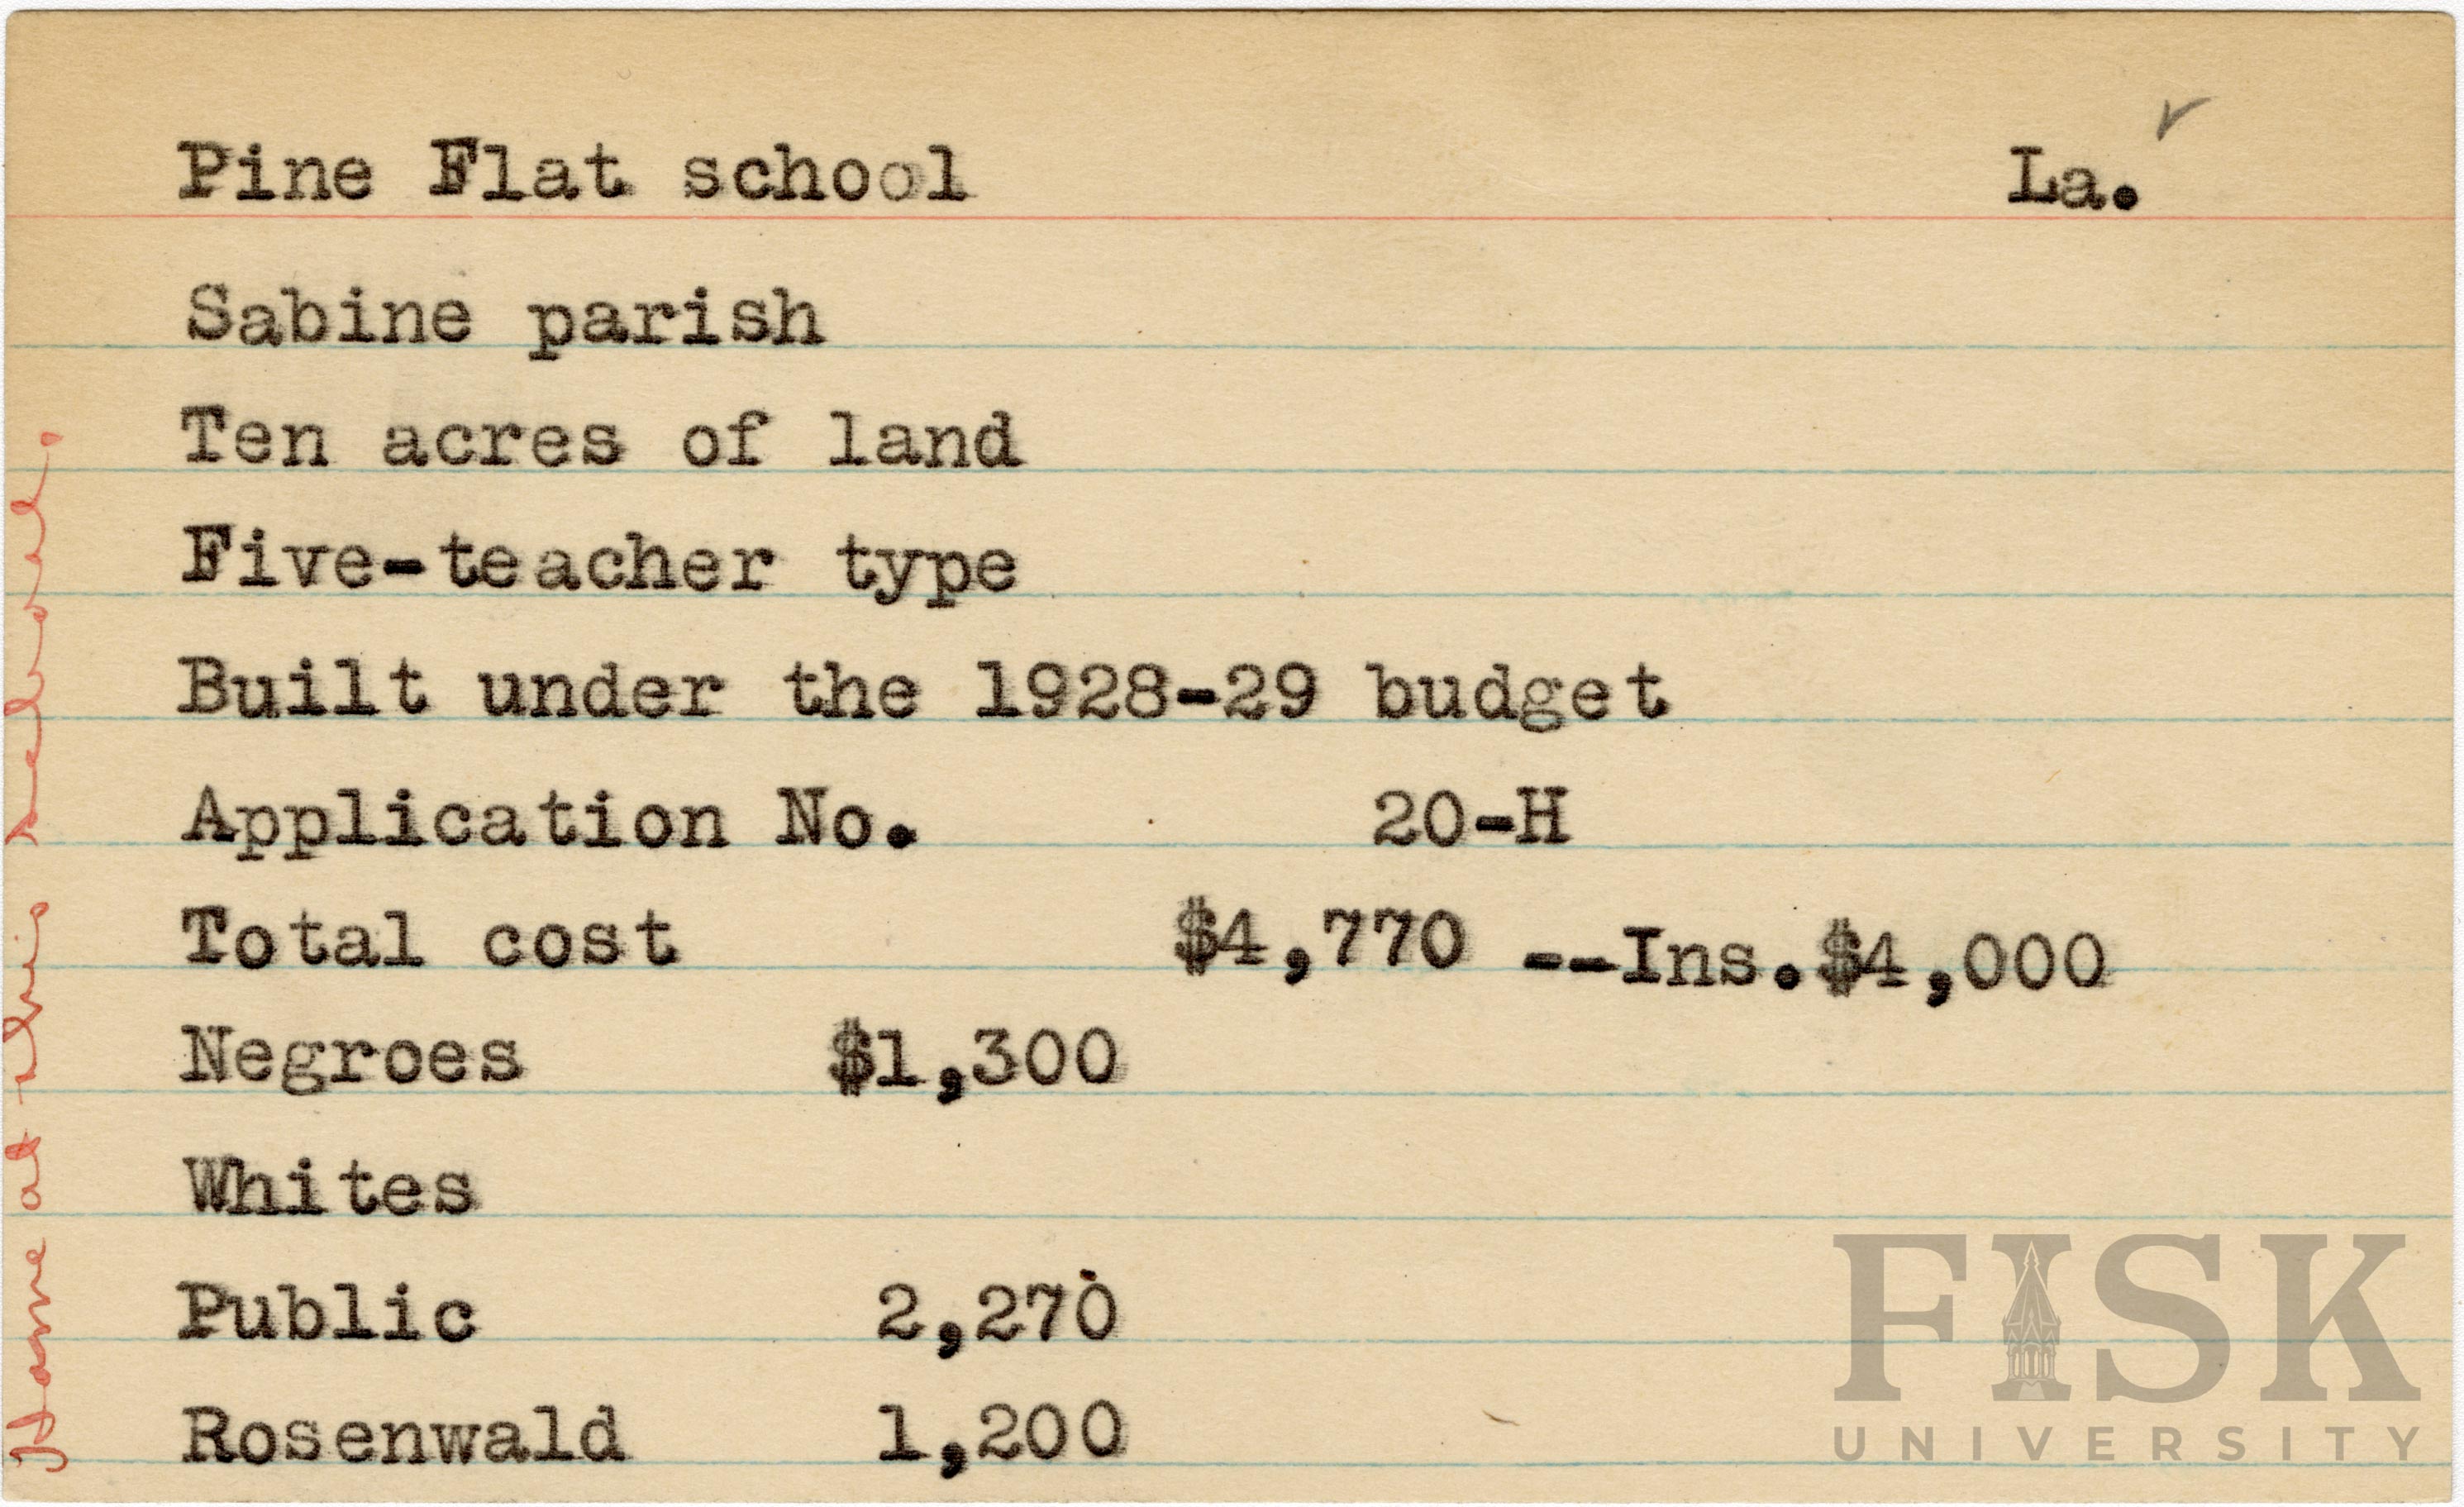 Pine Flat school La.
Sabine parish
Ten acres of land
Five-teacher type
Built under the 1928-29 budget
Application No. 20-H
Total cost $4,770 --Ins.$4,000
Negroes $1,300
Whites
Public 2,270
Rosenwald 1,200
Home at this school.
FISK
UNIVERSITY